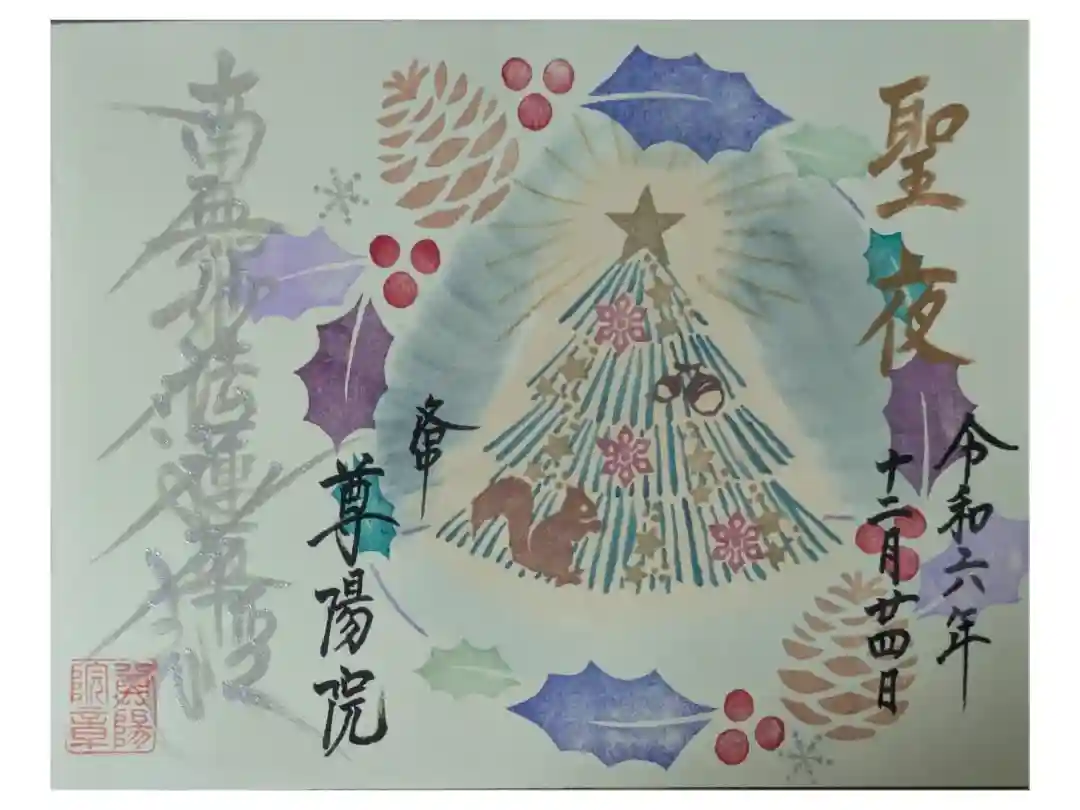 聖夜
令和六年
十二月廿四日
洛中
尊陽院
南無妙法蓮華経
尊陽院章